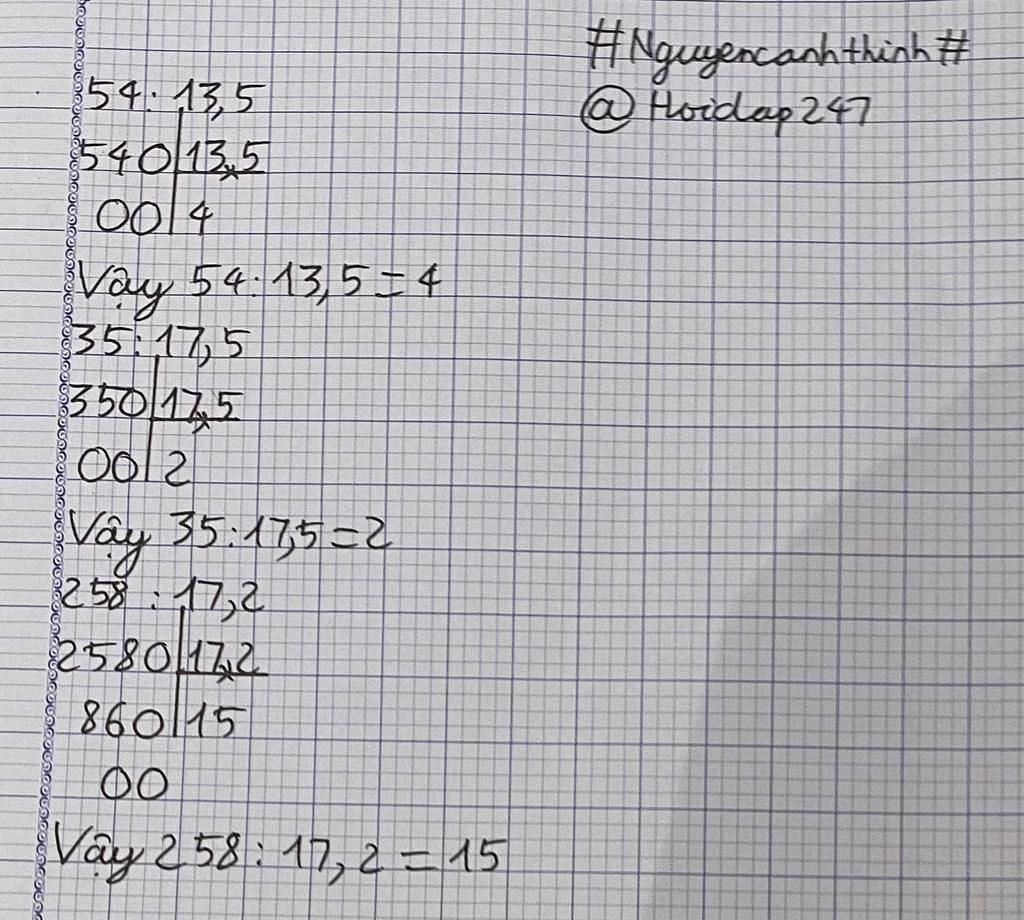 #Nguyencanhthinh#
@Hoidap247
54 : 13,5
540 | 13,5
00 | 4
Vậy 54 : 13,5 = 4
35 : 17,5
350 | 17,5
00 | 2
Vậy 35 : 17,5 = 2
258 : 17,2
2580 | 17,2
860 | 15
00
Vậy 258 : 17,2 = 15